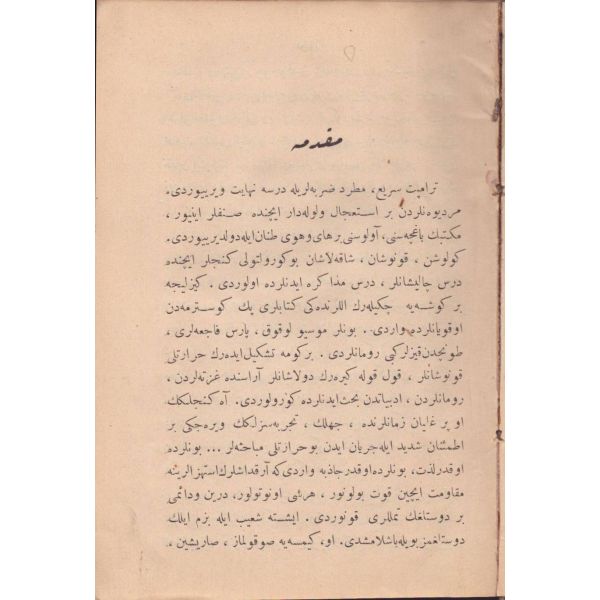 مقدمه
ترامپت سريع، مطرد ضربه‌لريله درسه نهايت ويرييوردى.
مرديوه‌نلردن بر استعجال ولوله‌دار ايچنده صنفلر اينيور،
مكتبك باغچه‌سنى، آولوسنى بر هاى وهوى طنان ايله دولديرييوردى.
كولوشن، قونوشان، شاقه‌لاشان بو كورولتولى كنجلر ايچنده
درس چاليشانلر، درس مذاكره ايدنلرده اولوردى، كيزليجه
بر كوشه‌يه چكيله‌رك اللرنده‌كى كتابلرى پك كوسترمه‌دن
اوقويانلرده واردى. بونلر موسيو لوقوق، پارس فاجعه‌لرى،
طونجدن قيزلركى رومانلردى. بر كومه تشكيل ايده‌رك حرارتلى
قونوشانلر، قول قوله كيره‌رك دولاشانلر آراسنده غزته‌لردن،
رومانلردن، ادبياتدن بحث ايدنلرده كورولوردى. آه كنجلكك
او پر غليان زمانلرنده، جهلك، تجربه‌سزلكك ويره‌جكى بر
اطمئنان شديد ايله جريان ايدن بو حرارتلى مباحثه‌لر... بونلرده
او قدر لذت، بونلرده او قدر جاذبه واردى كه آرقداشلرك استهزالرينه
مقاومت ايچين قوت بولونور، هرشى اونوتولور، درين ودائمى
بر دوستلغك تمللرى قونوردى. ايشته شعيب ايله بزم ايلك
دوستلغمز بويله باشلامشدى. او، كيمسه‌يه صوقولماز، صاريشين،